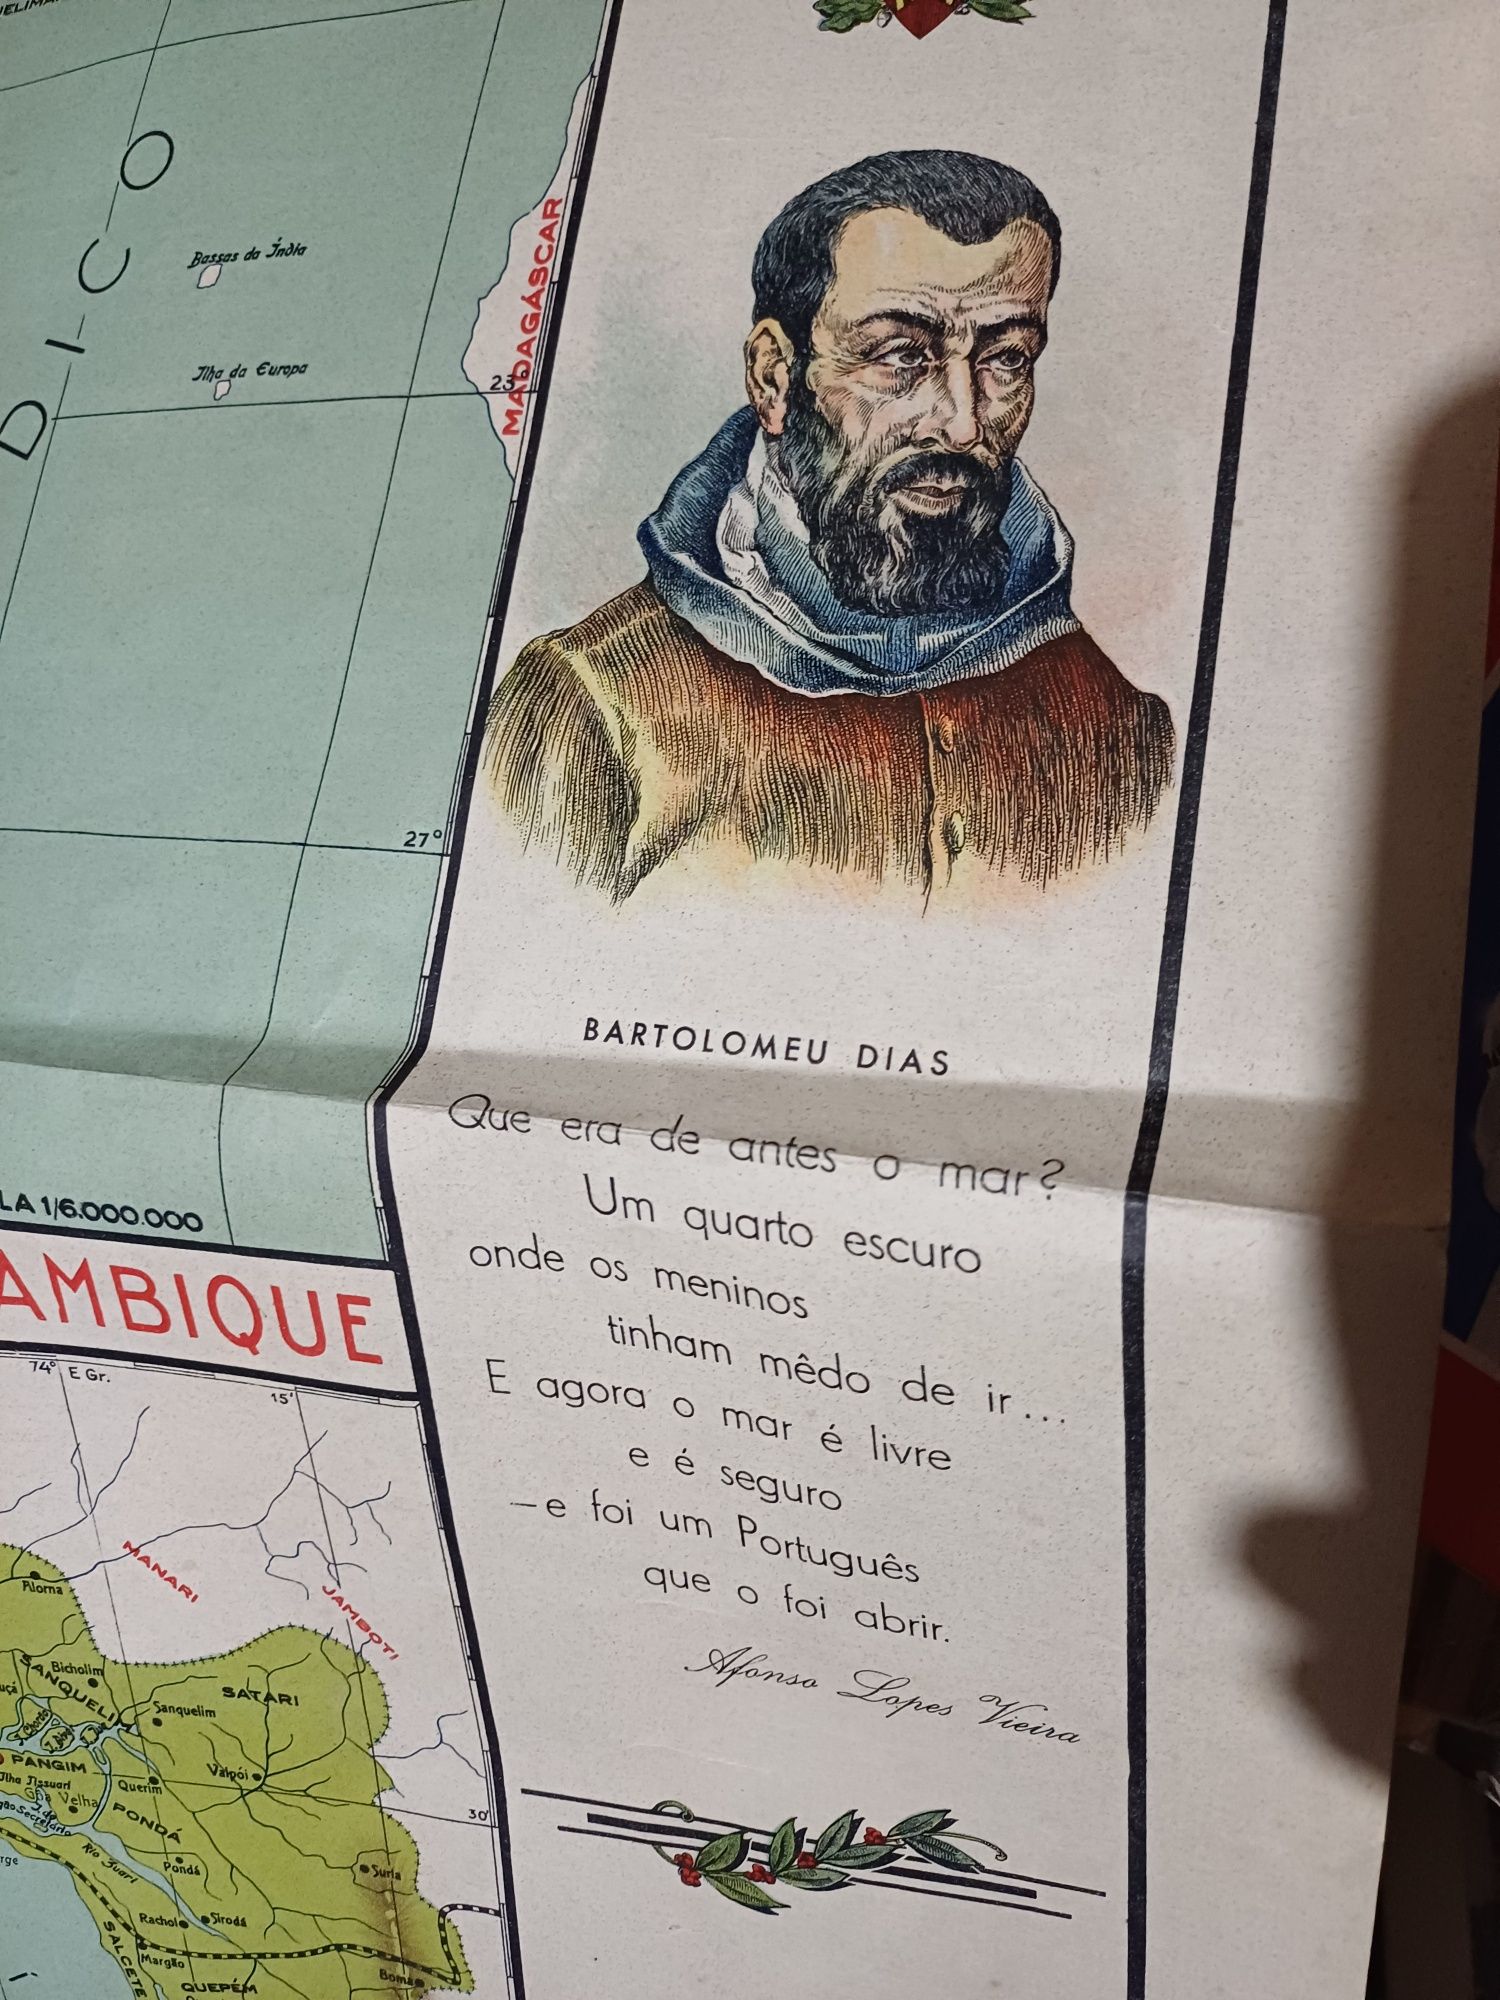 DICO
Bassas da Índia
Ilha da Europa
MADAGÁSCAR
23°
27°
LA 1/6.000.000
AMBIQUE
BARTOLOMEU DIAS
Que era de antes o mar?
Um quarto escuro
onde os meninos
tinham mêdo de ir...
E agora o mar é livre
e é seguro
—e foi um Português
que o foi abrir.
Afonso Lopes Vieira
74° E Gr.
15'
MANARI
JAMBOTI
Pilorna
Bicholim
SANQUELIM
SATARI
Sanquelim
PANGIM
Valpói
Querim
Goa Velha
PONDÁ
30'
Rio Zuari
Pondá
Surla
Rachol
Sirodá
Margão
SALCETE
Boma
QUEPÉM